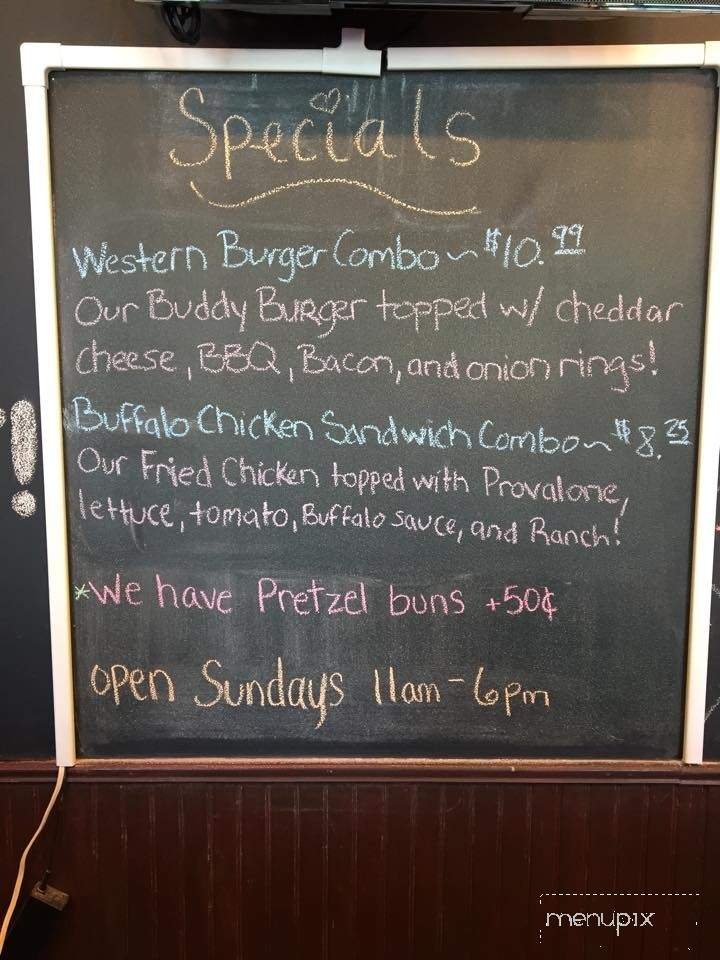 Specials
Western Burger Combo ~ $10.99
Our Buddy Burger topped w/ cheddar
cheese, BBQ, Bacon, and onion rings!
Buffalo Chicken Sandwich Combo ~ $8.25
Our Fried Chicken topped with Provalone,
lettuce, tomato, Buffalo sauce, and Ranch!
*We have Pretzel buns +50¢
open Sundays 11am - 6pm
!
menupix